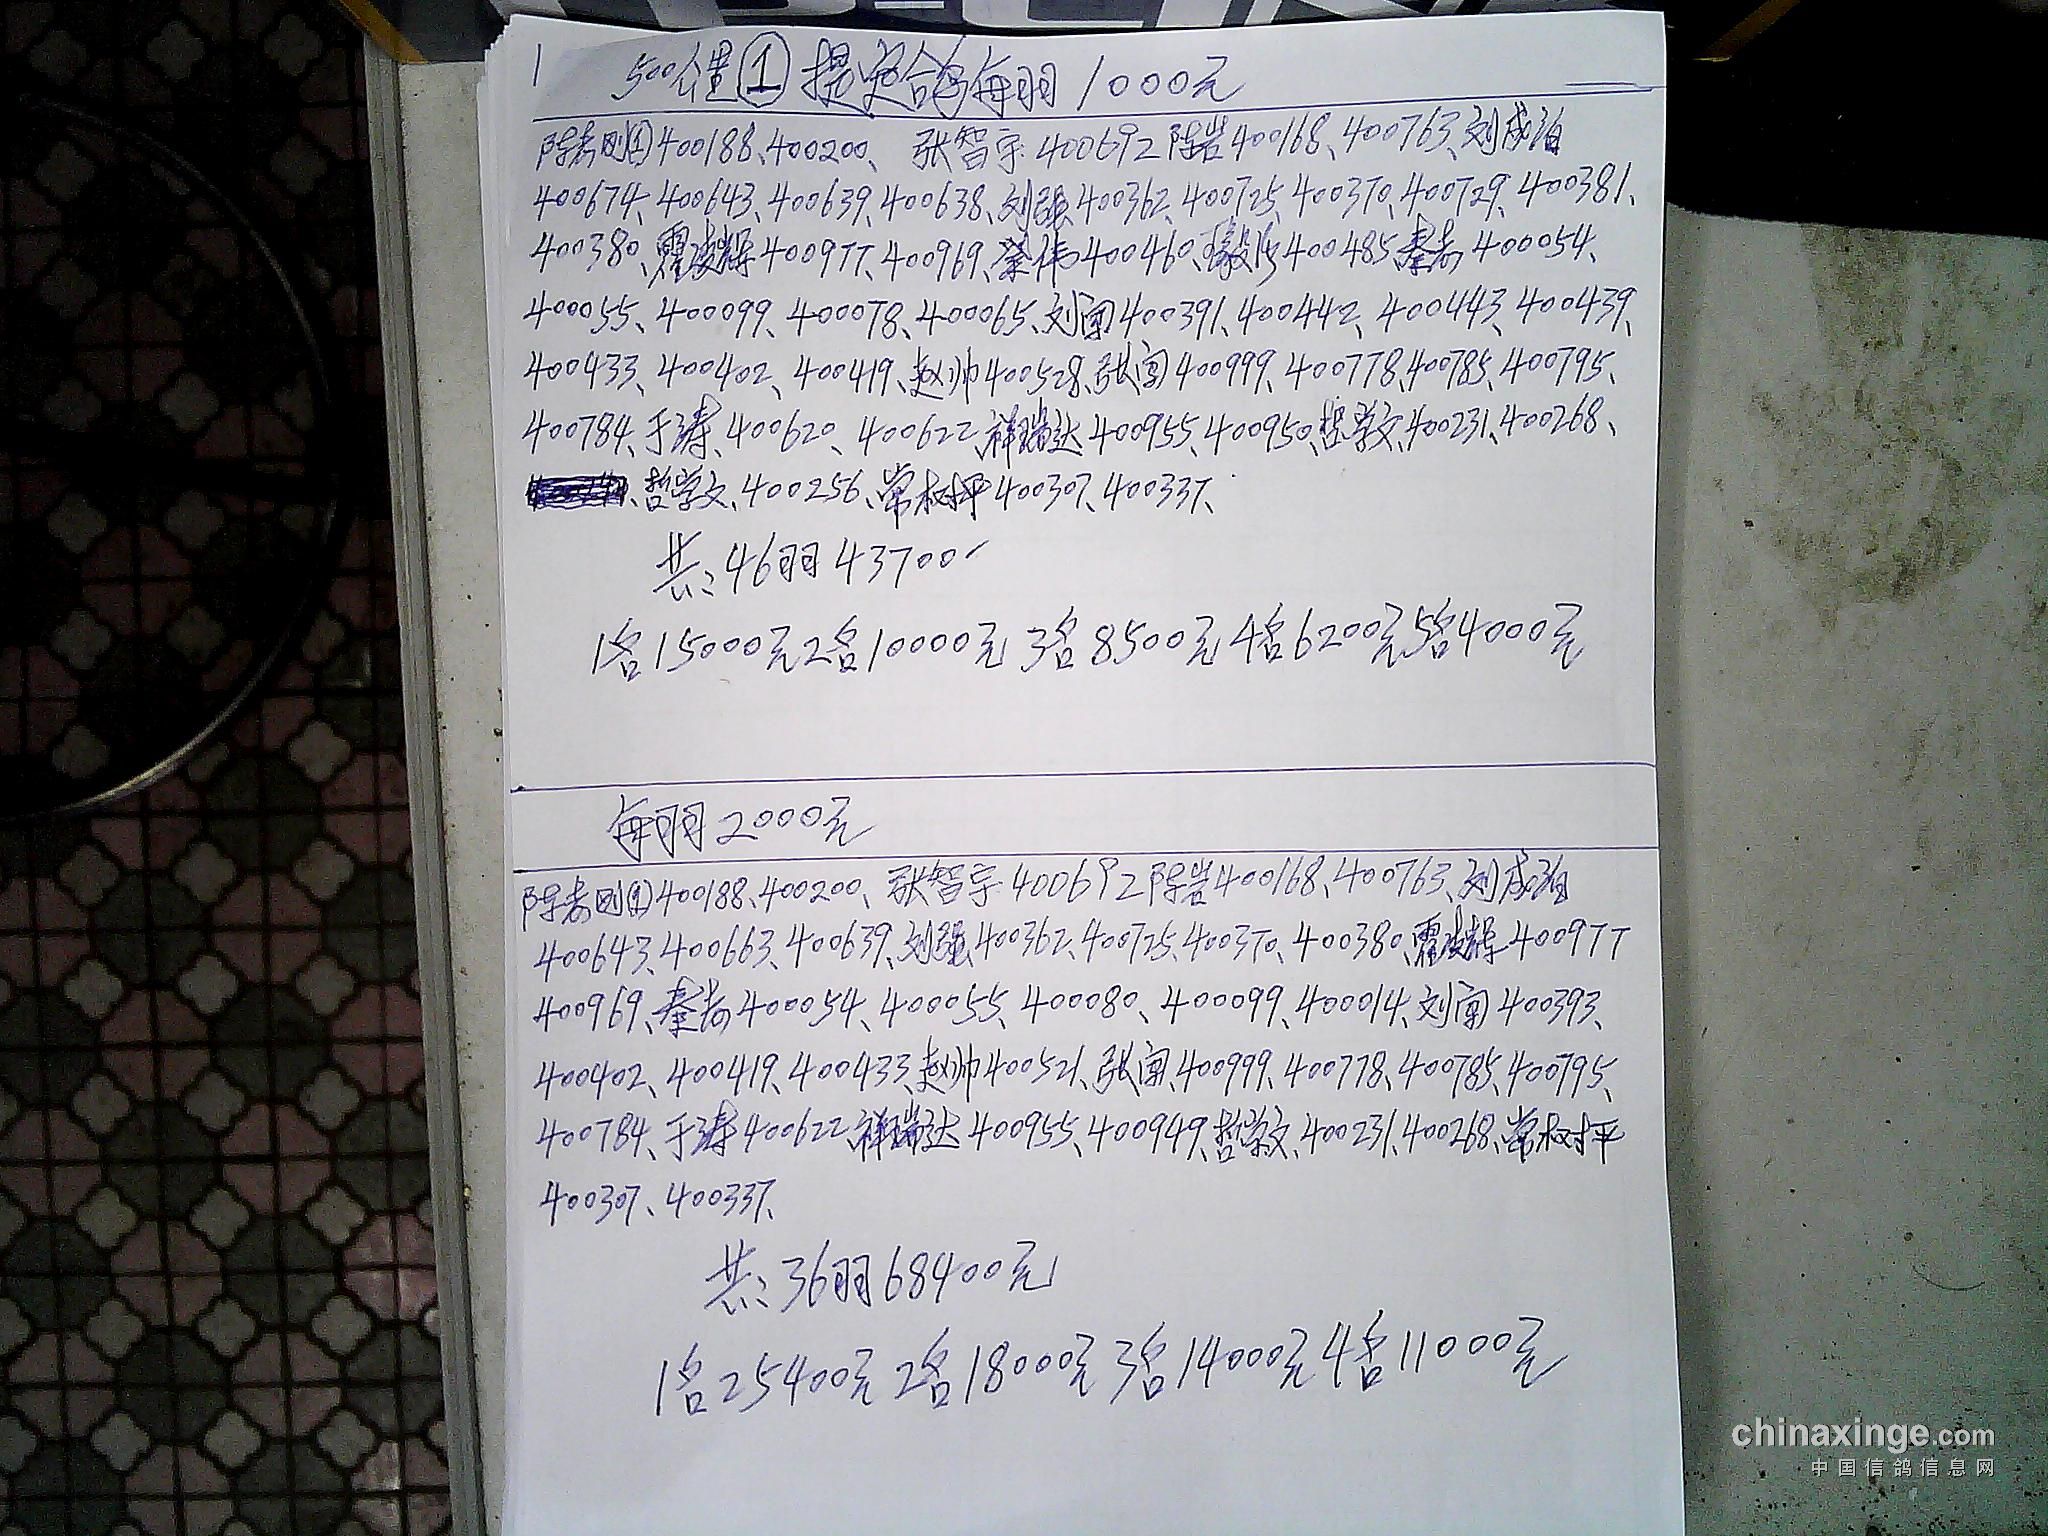 1 500 ① 提 每羽1000元
陈 刚① 400188、400200、 张智宇 400692 陈岩 400168、400763、刘成
400674、400643、400639、400638、刘强 400362、400725、400370、400729、400381、
400380、霍 辉 400977、400969、 伟 400460、 400485 秦 400054、
400055、400099、400078、400065、刘闯 400391、400442、400443、400439、
400433、400402、400419、赵帅 400528、张闯 400999、400778、400785、400795、
400784、于涛、400620、400622、祥瑞达 400955、400950、哲学文、400231、400268、
哲学文、400256、常树坪 400307、400337、
共:46羽 43700
1名15000元 2名10000元 3名8500元 4名6200元 5名4000元
每羽2000元
陈 刚① 400188、400200、 张智宇 400692 陈岩 400168、400763、刘成
400643、400663、400639、刘强、400362、400725、400370、400380、霍 辉 400977
400969、秦 400054、400055、400080、400099、400014、刘闯 400393、
400402、400419、400433、赵帅 400521、张闯、400999、400778、400785、400795、
400784、于涛 400622 祥瑞达 400955、400949、哲学文、400231、400268、常树坪
400307、400337、
共:36羽 68400元
1名25400元 2名18000元 3名14000元 4名11000元
chinaxinge.com
中国信鸽信息网